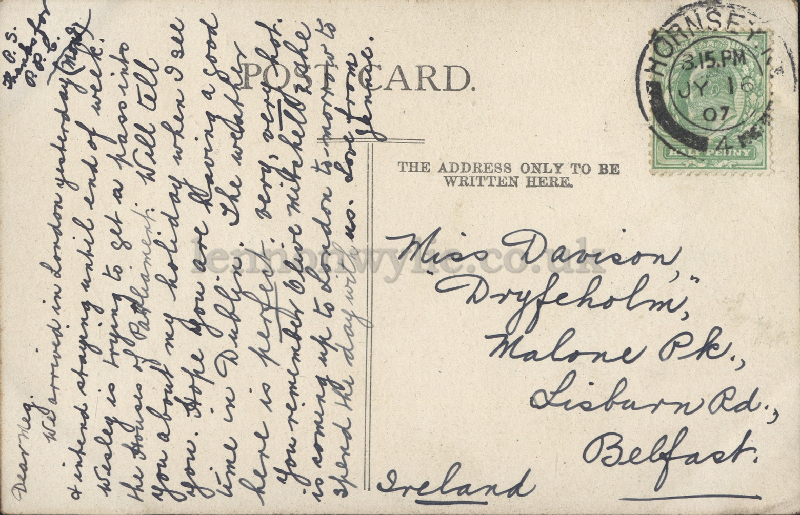 Dear Meg.
We arrived in London yesterday (Mon.)
& intend staying until end of week.
Wesley is trying to get a pass into
the Houses of Parliament. Will tell
you about my holiday when I see
you. Hope you are having a good
time in Dublin. The weather
here is perfect. very, very hot.
You remember Olive Mitchell? she
is coming up to London to-morrow to
spend the day with us. Love from
Jennie.
P.S.
Thanks for
P.P.C.
POST CARD.
THE ADDRESS ONLY TO BE
WRITTEN HERE.
HORNSEY N.
3.15.PM
JY 16
07
HALFPENNY
Miss Davison,
"Dryfeholm,"
Malone Pk.,
Lisburn Rd.,
Belfast.
Ireland
lennonwylie.co.uk